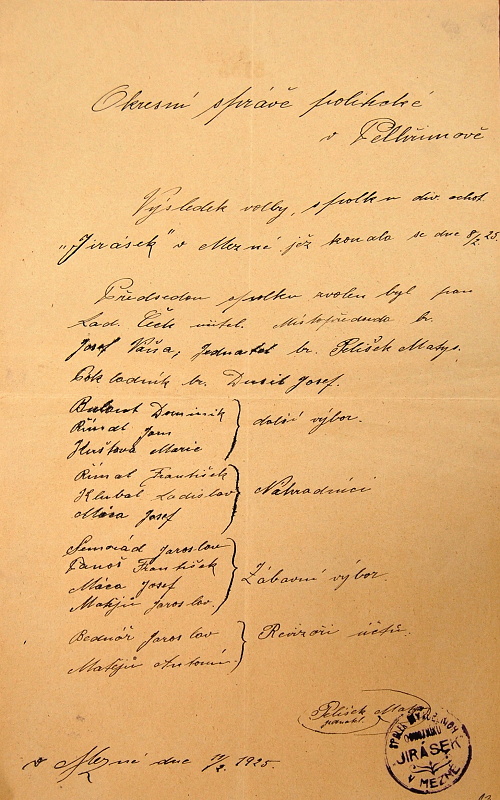 Okresní správě politické
v Pelhřimově
Výsledek volby, spolku div. ochot.
„Jirásek" v Mezné jež konala se dne 8/2 25.
Předsedou spolku zvolen byl pan
Lad. Čech učitel. Místopředseda br.
Josef Váša, Jednatel br. Pelíšek Matys.
Pokladník br. Dusil Josef.
Dominik
Římal Jan další výbor.
Marie
Římal František
Klubal Ladislav Náhradníci
Máca Josef
Semorád Jaroslav
Panoš František
Máca Josef Zábavní výbor.
Matějů Jaroslav.
Bednář Jaroslav Revizoři účtů.
Matějů Antonín.
Pelíšek
jednatel.
V Mezné dne 1925.
SPOLEK
JIRÁSEK
V MEZNÉ